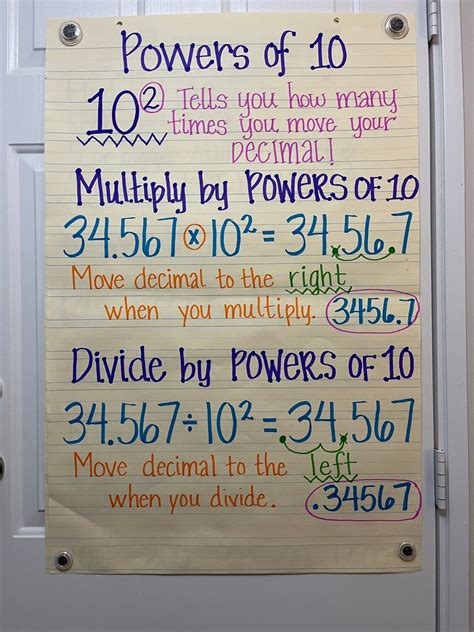 Powers of 10
10² Tells you how many
times you move your
DECIMAL!
Multiply by POWERS OF 10
34.567 x 10² = 34.56.7
Move decimal to the right
when you multiply. 3456.7
Divide by POWERS OF 10
34.567 ÷ 10² = .34.567
Move decimal to the left
when you divide. .34567